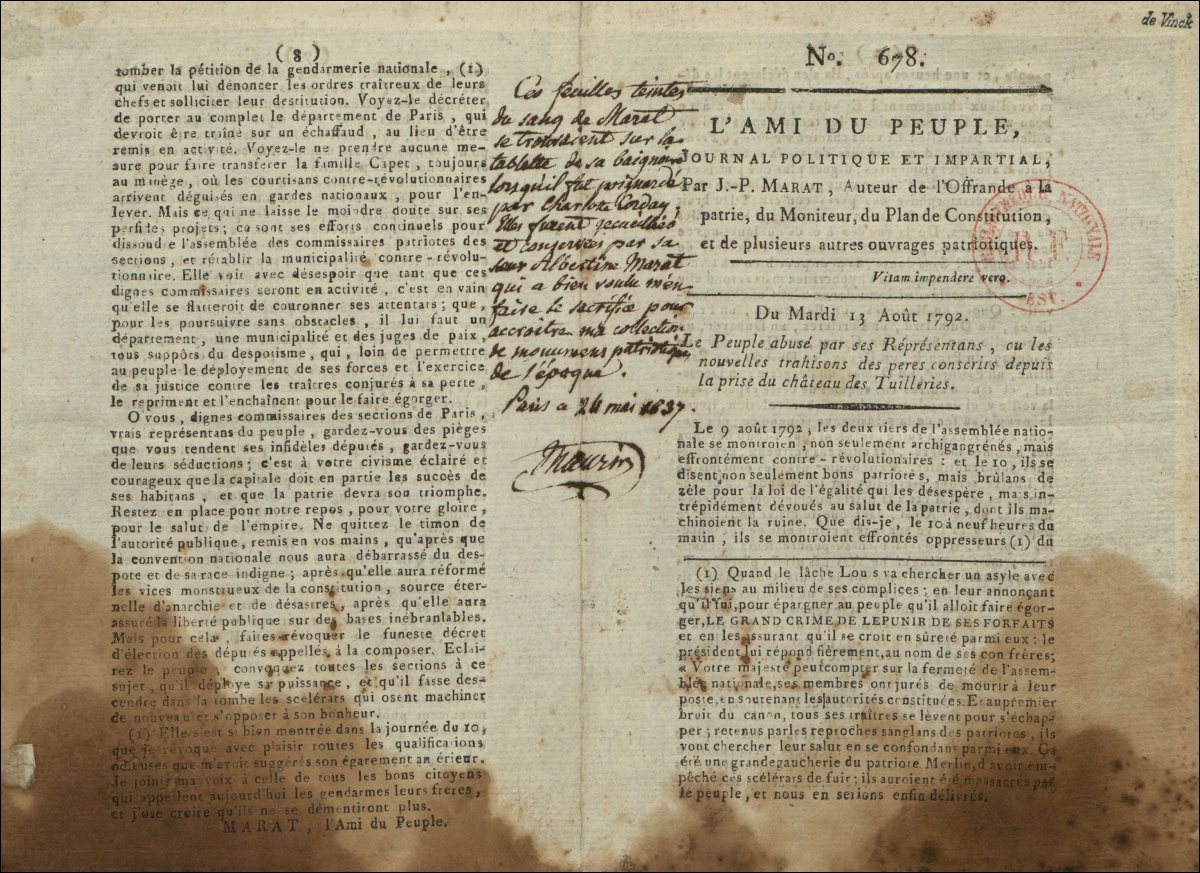 de Vinck
( 8 )
tomber la pétition de la gendarmerie nationale , (1)
qui venoit lui dénoncer les ordres traîtreux de leurs
chefs et solliciter leur destitution. Voyez-le décréter
de porter au complet le département de Paris , qui
devroit être traîné sur un échaffaud , au lieu d'être
remis en activité. Voyez-le ne prendre aucune me-
sure pour faire transférer la famille Capet , toujours
au minège, où les courtisans contre-révolutionnaires
arrivent déguisés en gardes nationaux , pour l'en-
lever. Mais ce qui ne laisse le moindre doute sur ses
perfides projets; ce sont ses efforts continuels pour
dissoudre l'assemblée des commissaires patriotes des
sections , et rétablir la municipalité contre-révolu-
tionnaire. Elle voit avec désespoir que tant que ces
dignes commissaires seront en activité , c'est en vain
qu'elle se flatteroit de couronner ses attentats; que ,
pour les poursuivre sans obstacles , il lui faut un
département , une municipalité et des juges de paix ,
tous suppôts du despotisme, qui , loin de permettre
au peuple le déployement de ses forces et l'exercice
de sa justice contre les traîtres conjurés à sa perte ,
le repriment et l'enchaînent pour le faire égorger.
O vous , dignes commissaires des sections de Paris ,
vrais représentans du peuple , gardez-vous des pièges
que vous tendent ses infidèles députés , gardez-vous
de leurs séductions ; c'est à votre civisme éclairé et
courageux que la capitale doit en partie les succès de
ses habitans , et que la patrie devra son triomphe.
Restez en place pour notre repos , pour votre gloire ,
pour le salut de l'empire. Ne quittez le timon de
l'autorité publique , remis en vos mains , qu'après que
la convention nationale nous aura débarrassé du des-
pote et de sa race indigne ; après qu'elle aura réformé
les vices monstrueux de la constitution , source éter-
nelle d'anarchie et de désastres , après qu'elle aura
assuré la liberté publique sur des bases inébranlables.
Mais pour cela , faites révoquer le funeste décret
d'élection des députés appellés à la composer. Eclai-
rez le peuple , convoquez toutes les sections à ce
sujet , qu'il déploye sa puissance , et qu'il fasse des-
cendre dans la tombe les scélérats qui osent machiner
de nouveau et s'opposer à son bonheur.
(1) Elle s'est si bien montrée dans la journée du 10,
que je révoque avec plaisir toutes les qualifications
odieuses que m'avoit suggérés son égarement antérieur.
Je joints ma voix à celle de tous les bons citoyens
qui appellent aujourd'hui les gendarmes leurs freres ,
et j'ose croire qu'ils ne se démentiront plus.
MARAT , l'Ami du Peuple.
Ces feuilles teintes
du sang de Marat
se trouvaient sur la
tablette de sa baignoire
lorsqu'il fut poignardé
par Charlotte Corday;
Elles furent recueillies
et conservées par sa
sœur Albertine Marat
qui a bien voulu m'en
faire le sacrifice pour
accroitre ma collection
de monumens patriotiques
de l'époque.
Paris ce 24 mai 1837.
Maurin
No. 678.
L'AMI DU PEUPLE,
JOURNAL POLITIQUE ET IMPARTIAL,
Par J.-P. MARAT, Auteur de l'Offrande à la
patrie, du Moniteur, du Plan de Constitution,
et de plusieurs autres ouvrages patriotiques.
BIBLIOTHEQUE NATIONALE
R.F.
EST.
Vitam impendere vero.
Du Mardi 13 Août 1792.
Le Peuple abusé par ses Réprésentans, ou les
nouvelles trahisons des peres conscrits depuis
la prise du château des Tuilleries.
Le 9 août 1792, les deux tiers de l'assemblée natio-
nale se montroien , non seulement archigangrénés, mais
effrontément contre-révolutionaires : et le 10, ils se
disent, non seulement bons patriotes, mais brûlans de
zèle pour la loi de l'égalité qui les désespère, mais in-
trépidément dévoués au salut de la patrie, dont ils ma-
chinoient la ruine. Que dis-je, le 10 à neuf heures du
matin , ils se montroient effrontés oppresseurs (1) du
(1) Quand le lâche Lou s va chercher un asyle avec
les siens au milieu de ses complices; en leur annonçant
qu'il fui, pour épargner au peuple qu'il alloit faire égor-
ger, LE GRAND CRIME DE LE PUNIR DE SES FORFAITS
et en les assurant qu'il se croit en sûreté parmi eux : le
président lui répond fièrement, au nom de ses con frères;
« Votre majesté peut compter sur la fermeté de l'assem-
blée nationale, ses membres ont jurés de mourir à leur
poste, en soutenant les autorités constituées. Et au premier
bruit du canon, tous ses traîtres se lèvent pour s'échap-
per ; retenus par les reproches sanglans des patriotes, ils
vont chercher leur salut en se confondans parmi eux. Ça
été une grande gaucherie du patriote Merlin, d'avoir em-
pêché ces scélérats de fuir; ils auroient été massacrés par
le peuple, et nous en serions enfin délivrés.